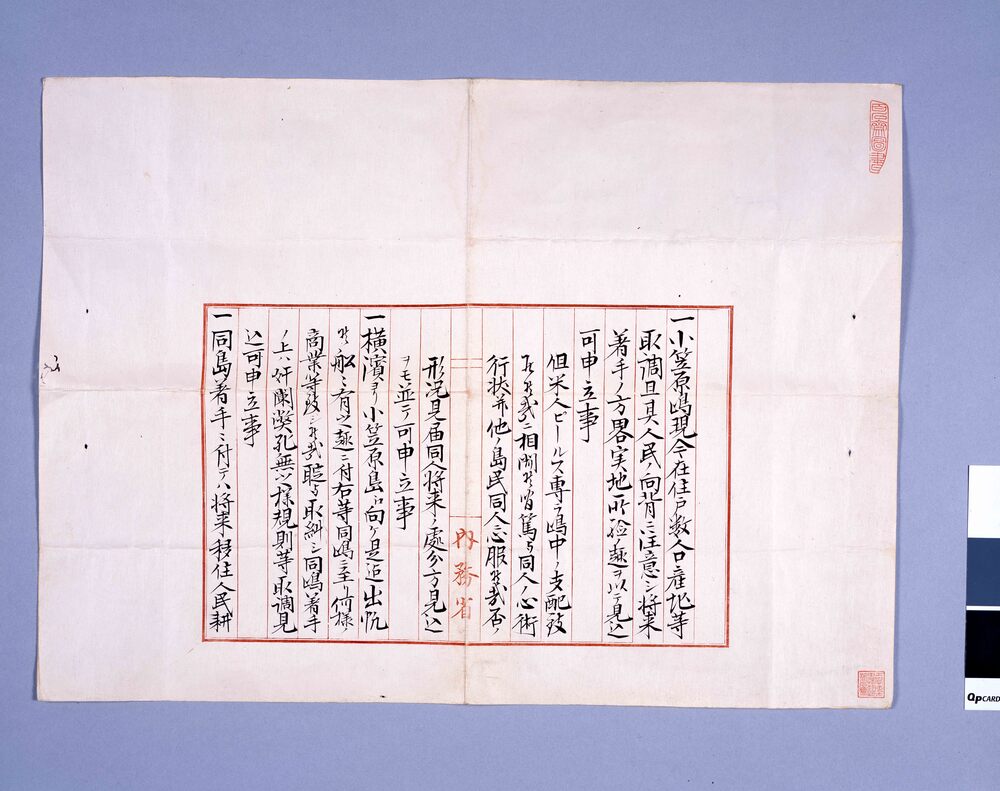 一小笠原嶋現今在住戸数人口産地等
取調且其人民ノ向背ニ注意シ将来
着手ノ方畧実地所验ノ趣ヲ以テ見込
可申立事
但米人ピールス専ラ嶋中ノ支配致
居候哉ニ相聞候間篤与同人心術
行状并他ノ島民同人ニ心服候哉否ノ
形况見届同人将来ノ處分方見込
ヲモ並テ可申立事
内務省
一横濱ヨリ小笠原島ニ向ケ是迄出帆
候舩モ有之趣ニ付右等同嶋ニ至リ何様ノ
商業等致シ候哉聢与取糾シ同嶋着手
ノ上ハ奸闌弊孔無之様規則等取調見
込可申立事
一同島着手ニ付テハ将来移住人民耕
QPCARD